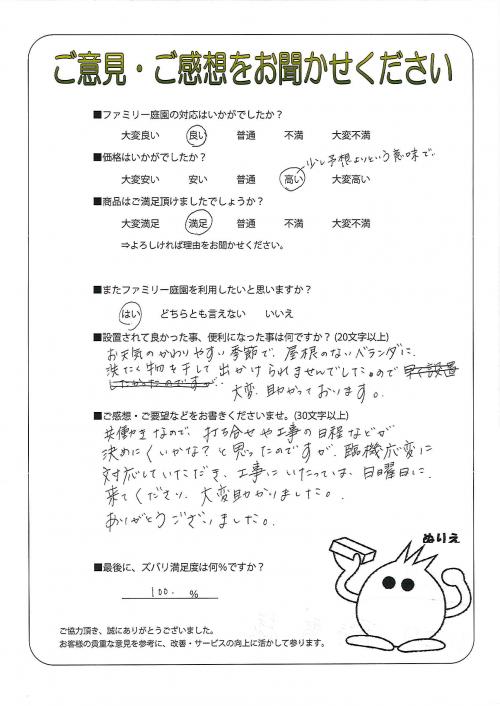 ご意見・ご感想をお聞かせください
■ファミリー庭園の対応はいかがでしたか？
大変良い 良い 普通 不満 大変不満
■価格はいかがでしたか？
少し予想よりという意味で
大変安い 安い 普通 高い 大変高い
■商品はご満足頂けましたでしょうか？
大変満足 満足 普通 不満 大変不満
⇒よろしければ理由をお聞かせください。
■またファミリー庭園を利用したいと思いますか？
はい どちらとも言えない いいえ
■設置されて良かった事、便利になった事は何ですか？(20文字以上)
お天気のかわりやすい季節で、屋根のないベランダに
洗たく物を干して出かけられませんでした。ので
大変助かっております。
■ご感想・ご要望などをお書きくださいませ。(30文字以上)
共働きなので、打ち合せや工事の日程などが
決めにくいかな？と思ったのですが、臨機応変に
対応していただき、工事にいたっては、日曜日に
来てください、大変助かりました。
ありがとうございました。
ぬりえ
■最後に、ズバリ満足度は何％ですか？
100. ％
ご協力頂き、誠にありがとうございました。
お客様の貴重な意見を参考に、改善・サービスの向上に活かして参ります。